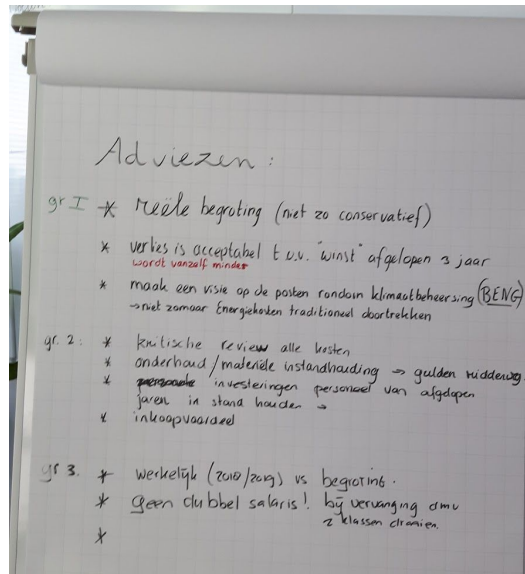 Adviezen :
gr I * reële begroting (niet zo conservatief)
* verlies is acceptabel t.v.v. "winst" afgelopen 3 jaar
wordt vanzelf minder
* maak een visie op de posten rondom klimaatbeheersing (BENG)
→ niet zomaar Energiekosten traditioneel doortrekken
gr. 2: * kritische review alle kosten
* onderhoud/materiële instandhouding → gulden middenweg.
* investeringen personeel van afgelopen
jaren in stand houden →
* inkoopvoordeel
gr 3. * werkelijk (2018/2019) vs begroting.
* geen dubbel salaris! bij vervanging dmv
2 klassen draaien.
*